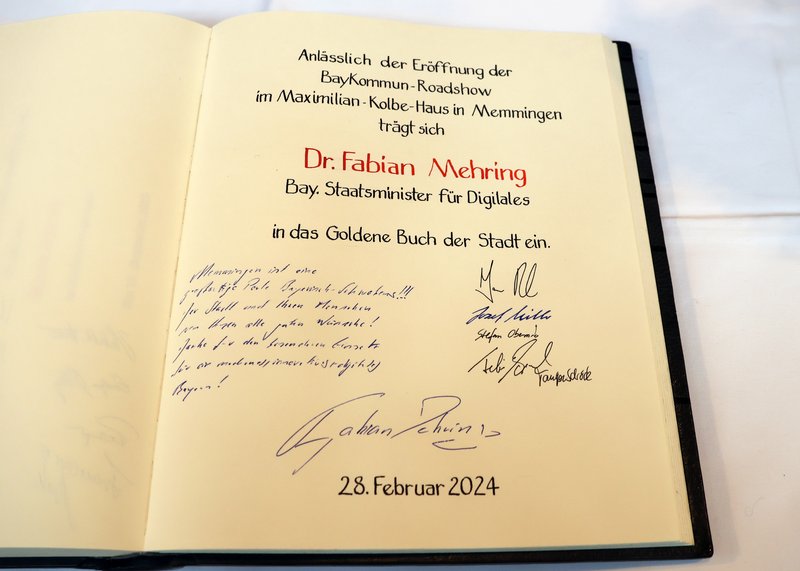 Anlässlich der Eröffnung der
BayKommun-Roadshow
im Maximilian-Kolbe-Haus in Memmingen
trägt sich
Dr. Fabian Mehring
Bay. Staatsminister für Digitales
in das Goldene Buch der Stadt ein.
Memmingen ist eine
großartige Perle Bayerisch-Schwabens!!!
Der Stadt und Ihren Menschen
von Herzen alle guten Wünsche!
Danke für den besonderen Einsatz
für ein
Bayern!
Josef Miller
Stefan
Fabian Mehring
28. Februar 2024